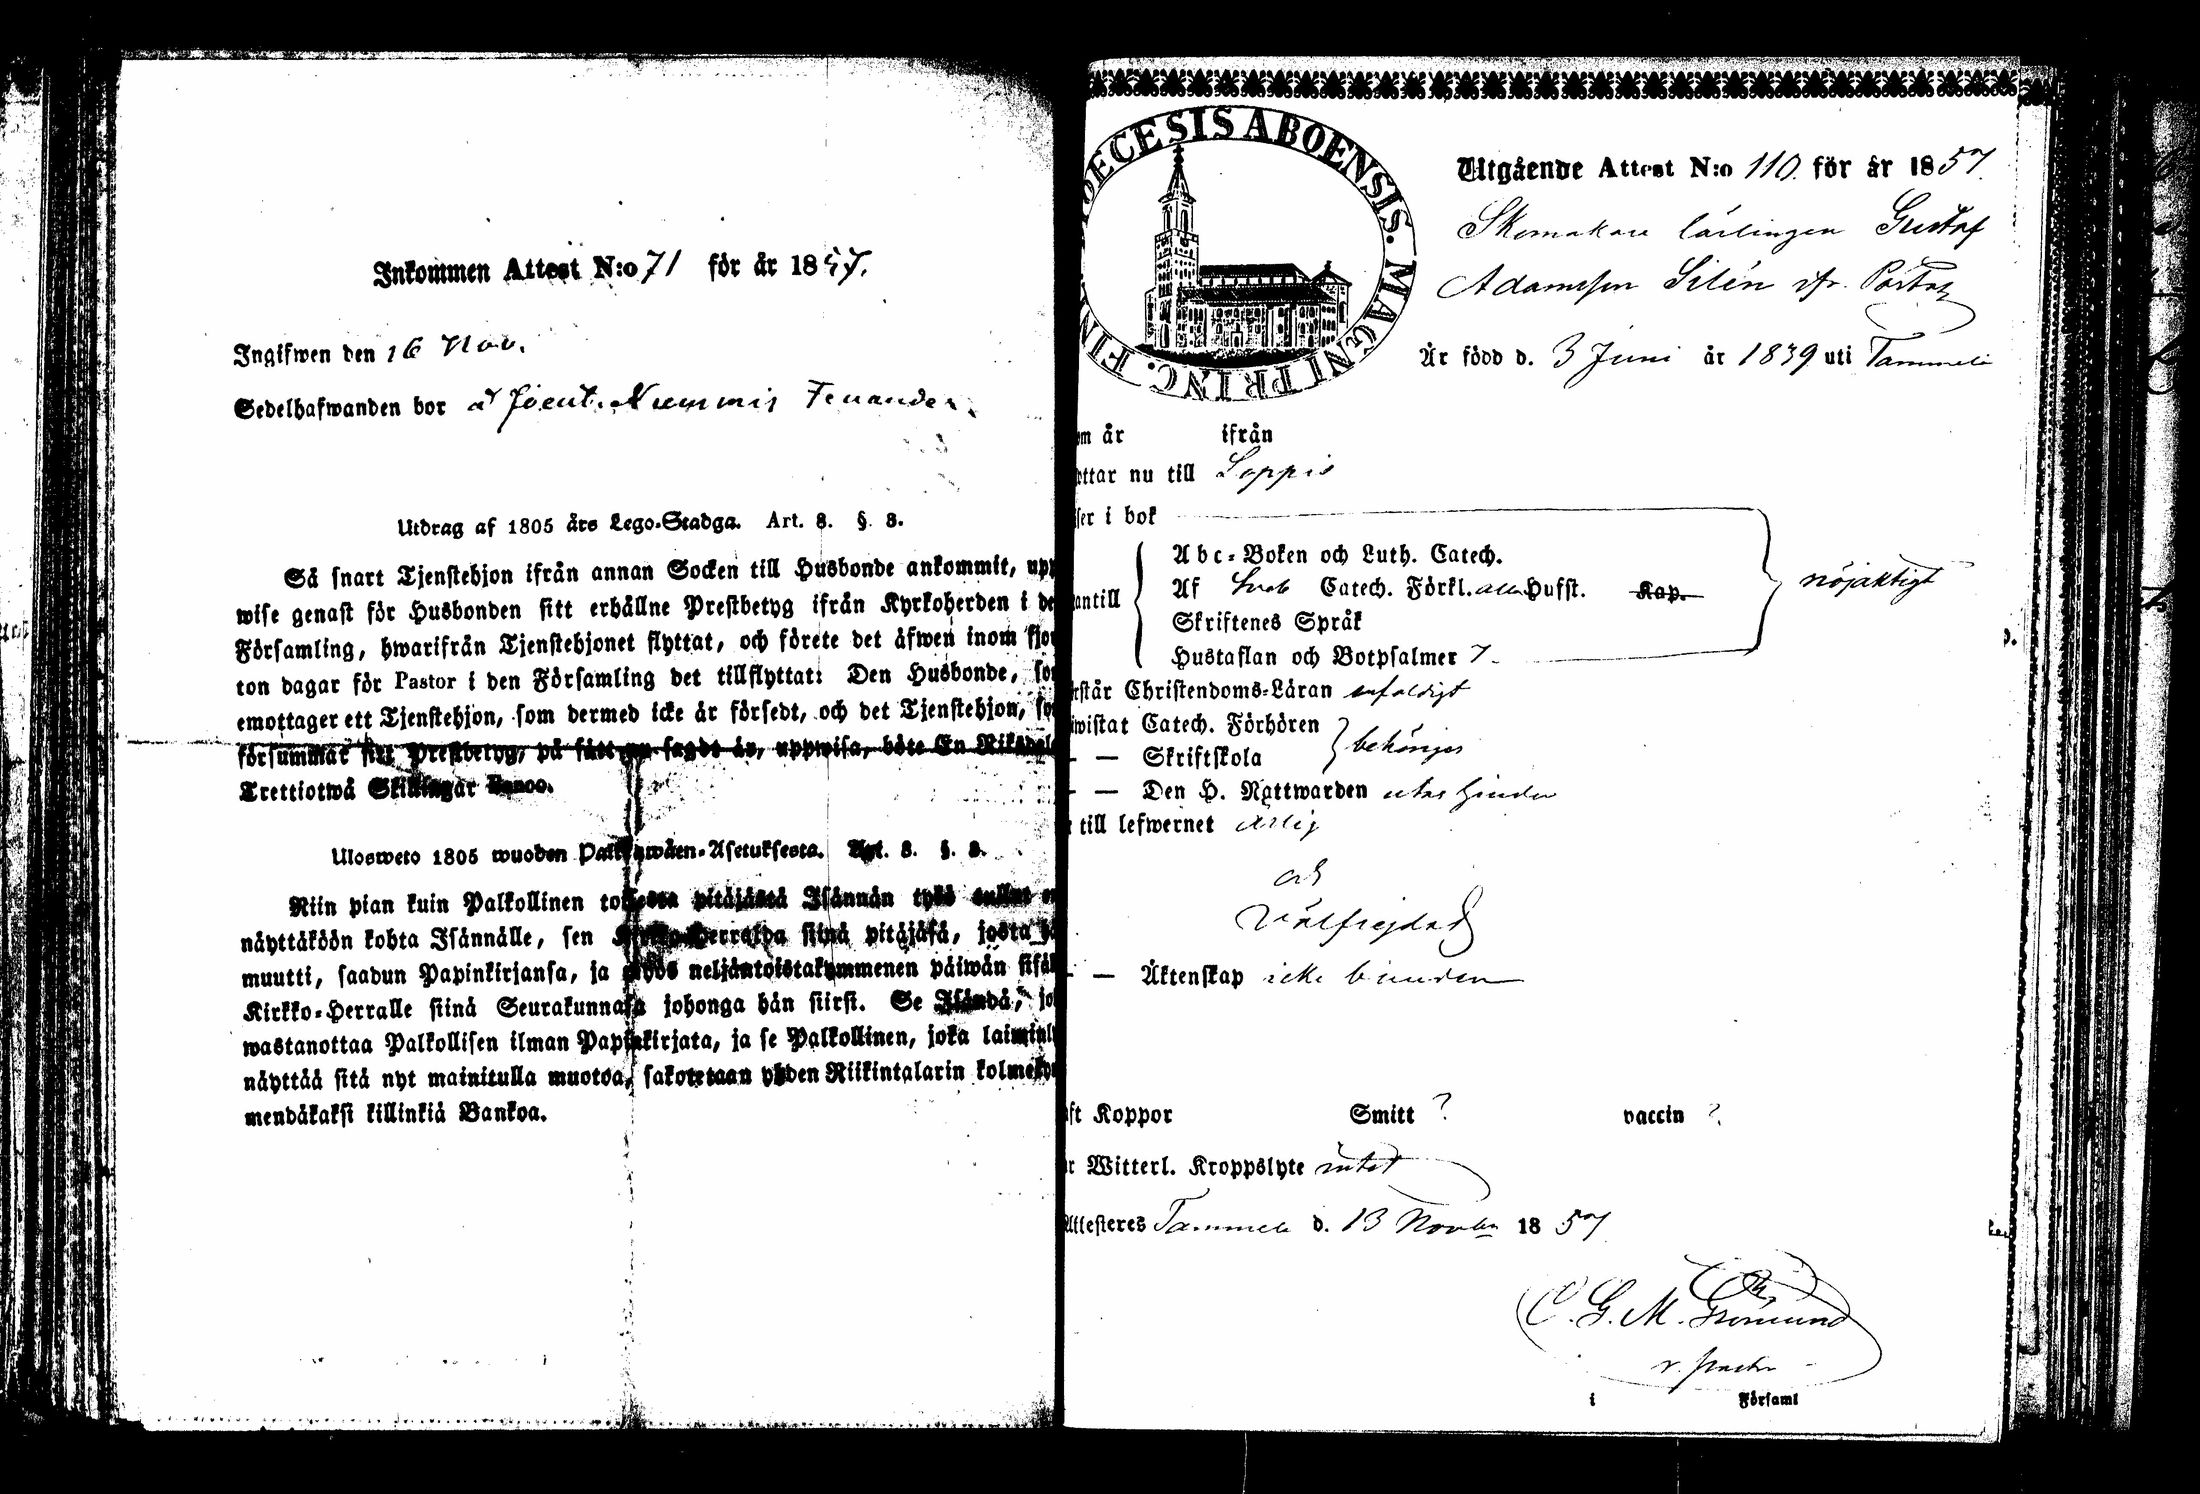 Inkommen Attest N:o 71 för år 1857.
Ingifwen den 16 Nov.
Sedelhafwanden bor
Utdrag af 1805 års Lego-Stadga. Art. 8. §. 8.
Så snart Tjenstehjon ifrån annan Socken till Husbonde ankommit, upp
wise genast för Husbonden sitt erhållne Prestbetyg ifrån Kyrkoherden i de
Församling, hwarifrån Tjenstehjonet flyttat, och förete det äfwen inom fjor
ton dagar för Pastor i den Församling det tillflyttat: Den Husbonde, so
emottager ett Tjenstehjon, som dermed icke är försedt, och det Tjenstehjon, so
försummar sitt Prestbetyg, på sätt nu sagdt är, uppwisa, böte En Riksdal
Trettiotwå Skillingar Banco.
Ulosweto 1805 wuoden Palkkawäen-Asetuksesta. Art. 8. §. 8.
Niin pian kuin Palkollinen toisesta pitäjästä Isännän työö tullut
näyttäköön kohta Isännälle, sen Kirkko-Herralda siinä pitäjäsä, josta
muutti, saadun Papinkirjansa, ja myös neljäntoistakymmenen päiwän sisäl
Kirkko-Herralle siinä Seurakunnasa johonga hän siirsi. Se Isändä, jo
wastanottaa Palkollisen ilman Papinkirjata, ja se Palkollinen, joka laiminly
näyttää sitä nyt mainitulla muotoa, sakotetaan yhden Riikintalarin kolmeky
mendäkaksi killinkiä Bankoa.
DIOECESIS ABOENSIS. MAGNI PRINC. FIN
Utgående Attest N:o 110. för år 1857.
Skomakare lärlingen Gustaf
Adamsson Silén ifr. Portas
Är född d. 3 Juni år 1839 uti Tammela
om år ifrån
ottar nu till Loppis
ser i bok
antill
Abc-Boken och Luth. Catech.
Af Sveb Catech. Förkl. alla Hufst. Kap.
Skriftenes Språk
Hustaflan och Botpsalmer 7.
nöjaktigt
rstår Christendoms-Läran enfaldigt
iwistat Catech. Förhören
— — Skriftskola
behörigen
— — Den H. Nattwarden utan hinder
till lefwernet ärlig
och
välfrejdad
— — Äktenskap icke bunden
ft Koppor Smitt ? vaccin ?
r Witterl. Kroppslyte intet
Attesteres Tammela d. 13 Novbr 1857
C. G. M. Grönlund
v. pastor
i Församl